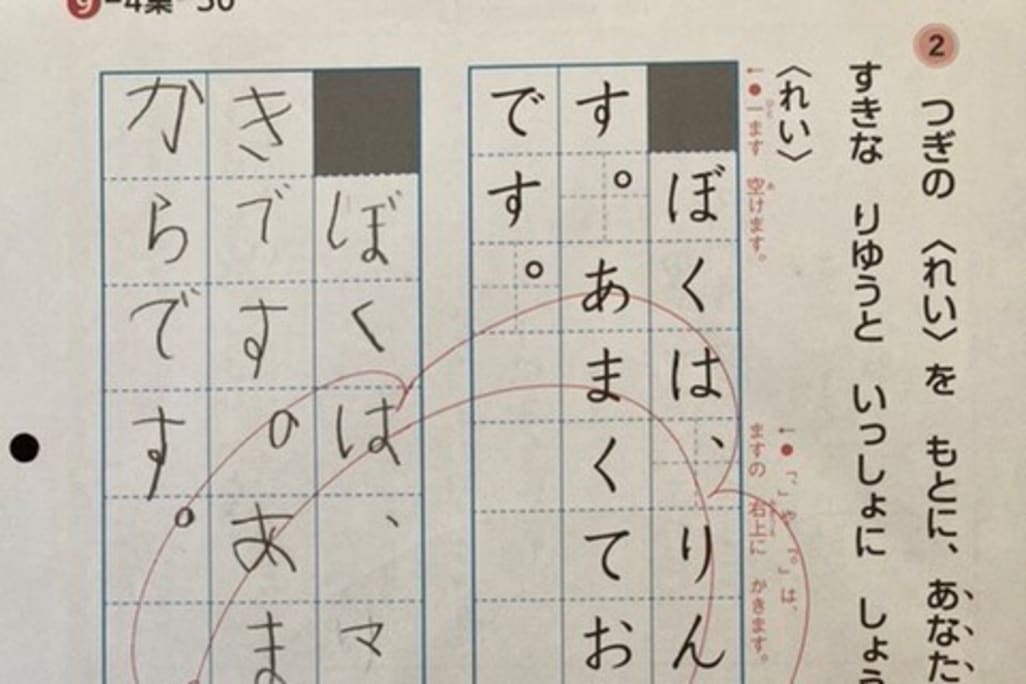 9-4集 50
2 つぎの 〈れい〉を もとに、あなた
すきな りゆうと いっしょに しょう
〈れい〉
←●一ます 空けます。
←●「、」や「。」は、
ますの 右上に かきます。
ぼくは、りん
す。あまくてお
です。
ぼくは、マ
きです。あま
からです。